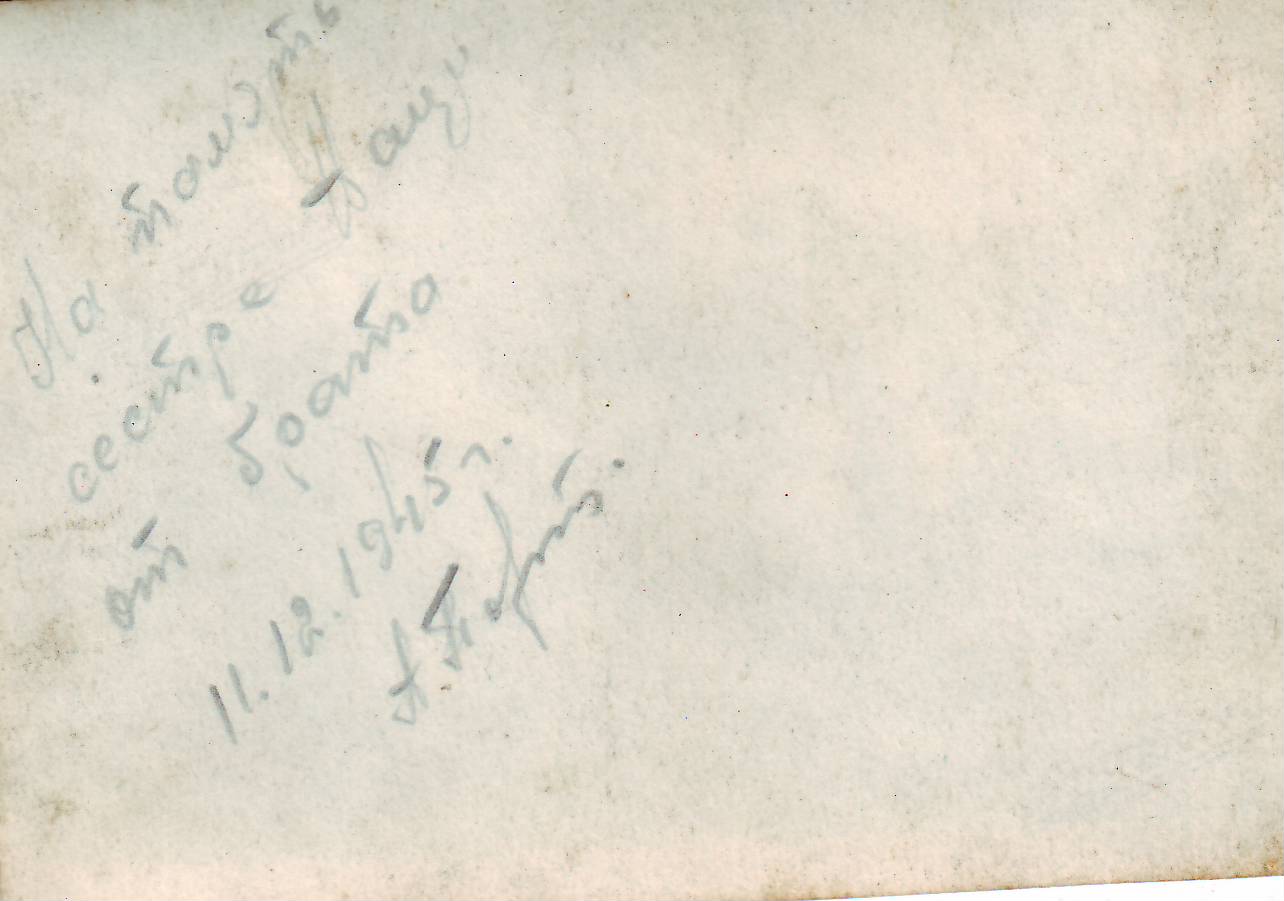 На память
сестре
от брата
11.12.1945 г.